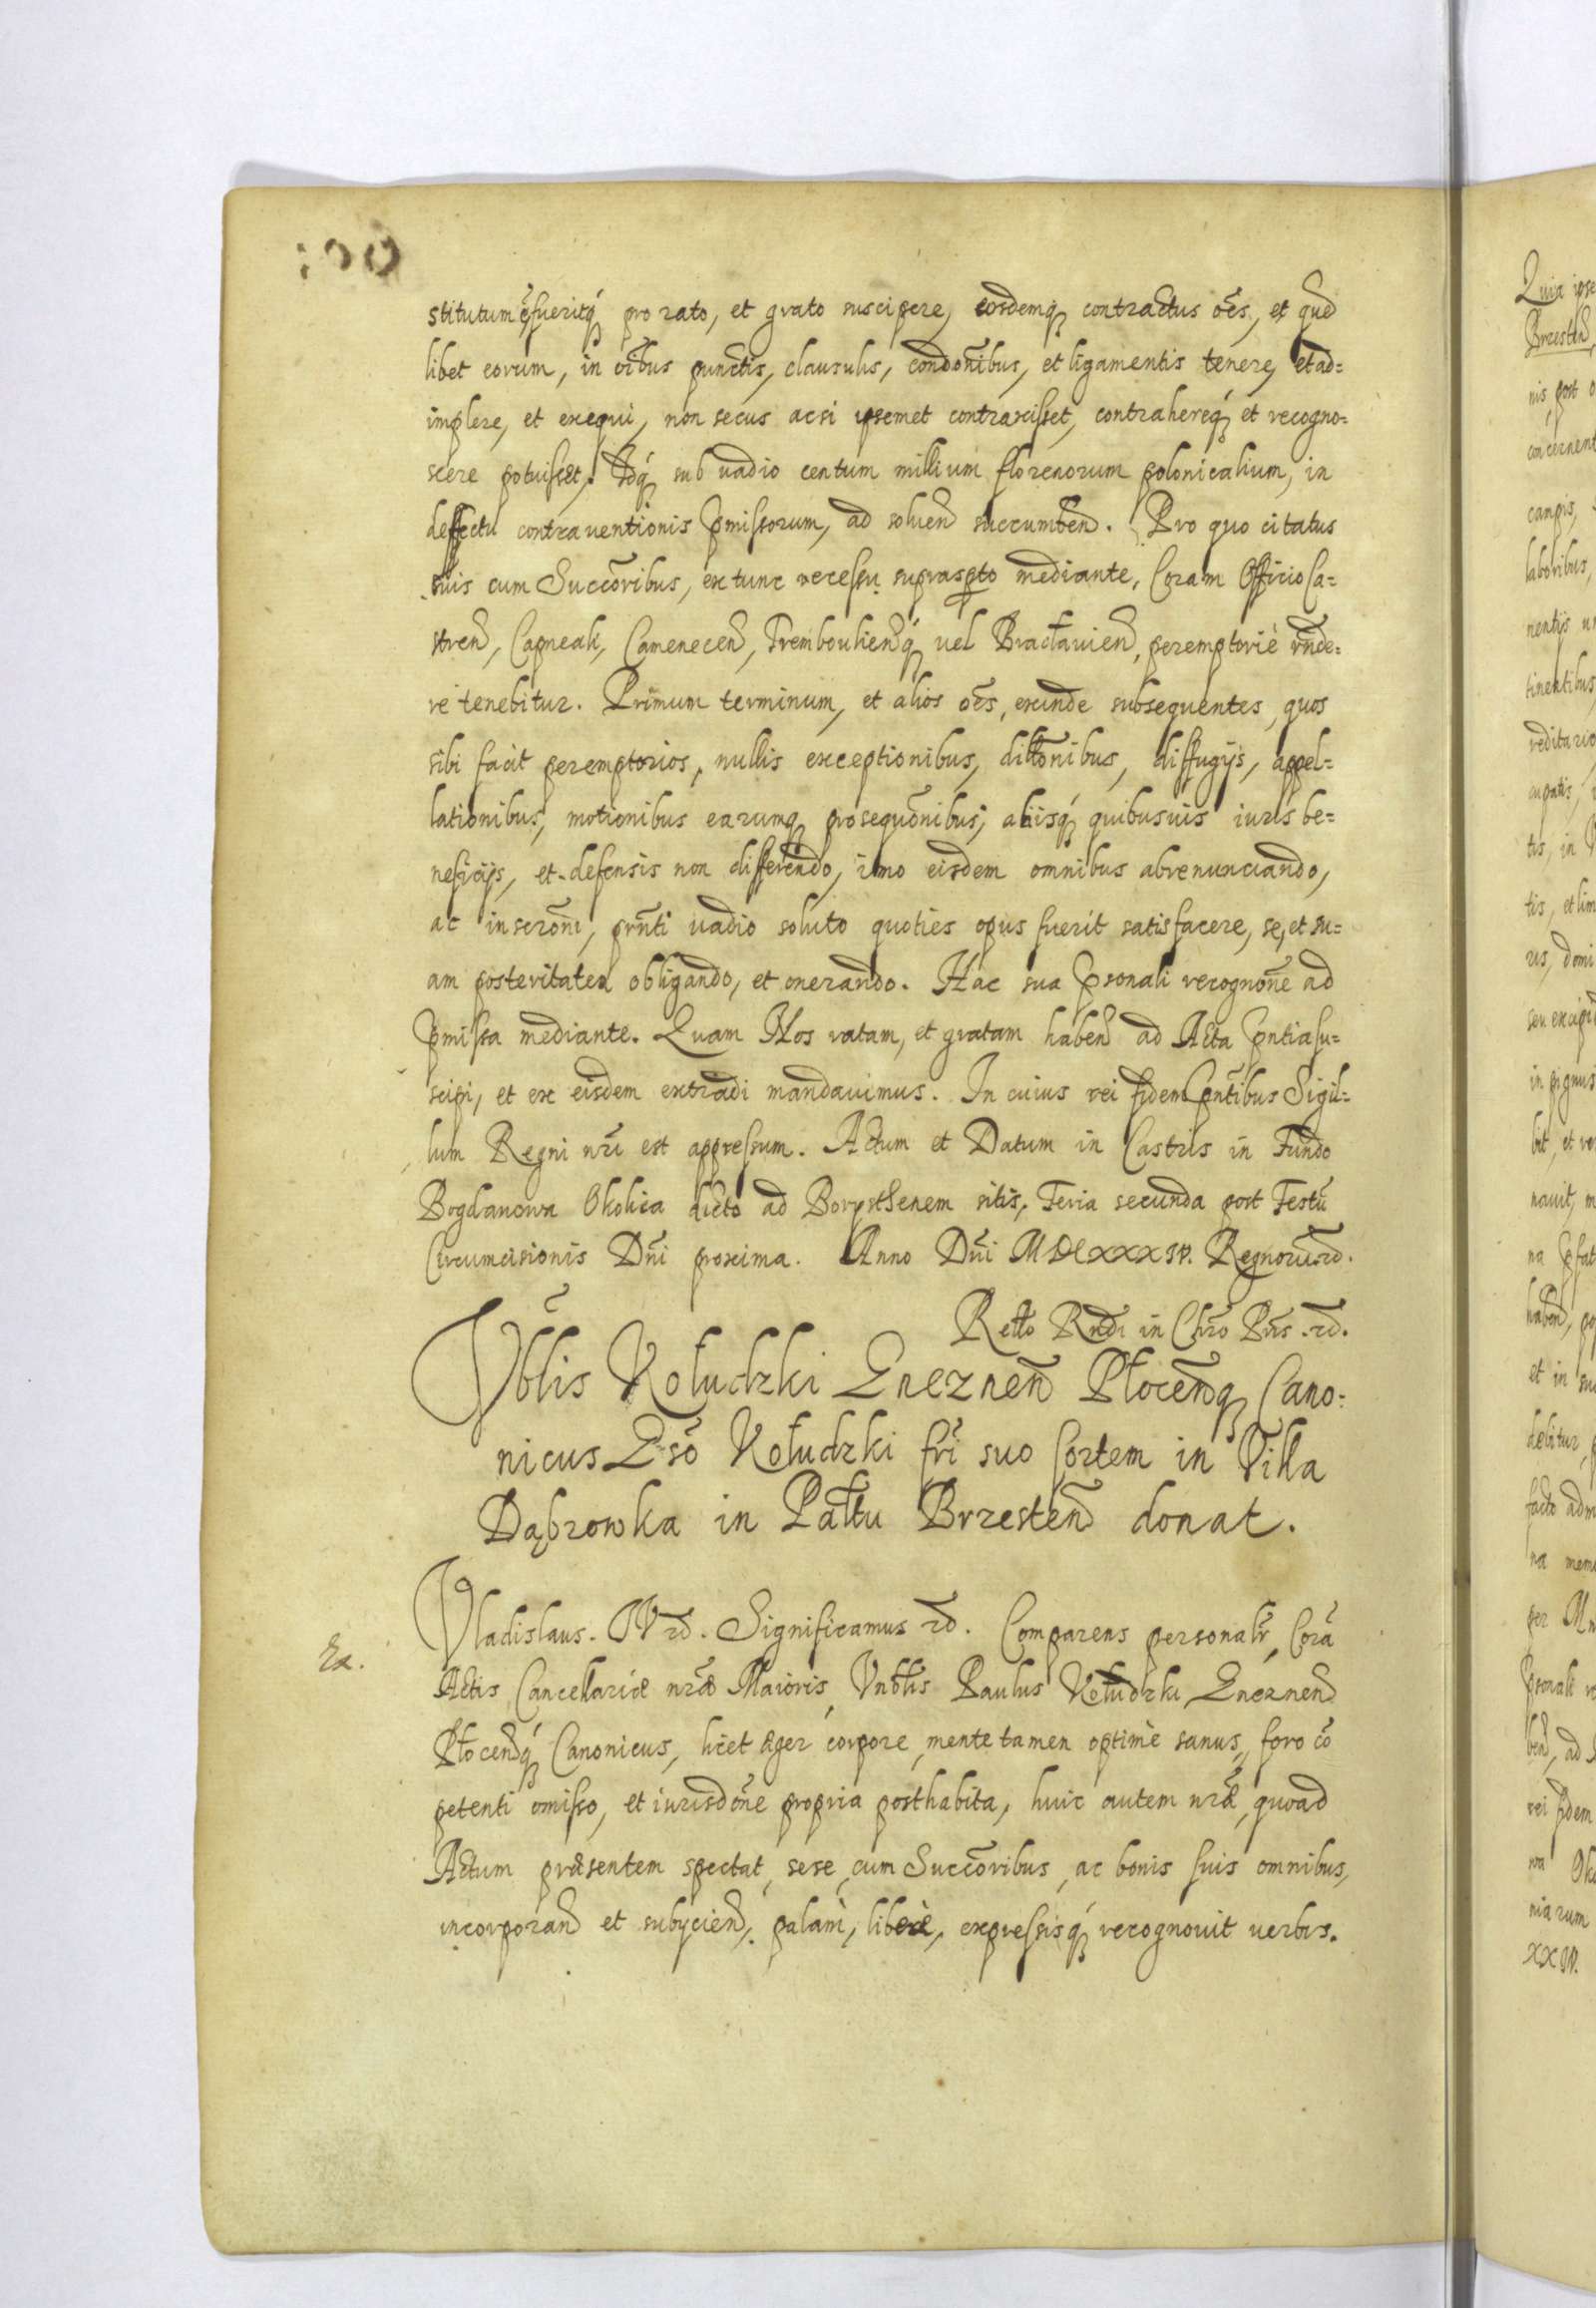 stitutum q̃ fueritq́ pro rato, et grato suscipere, eosdemq̨ contractus oẽs, et quod
libet eorum, in oĩbus punctis, clausulis, condõnibus, et ligamentis tenere, et ad=
implere, et exequi, non secus ac si ipsemet contraxisset, contrahereq́ et recogno=
scere potuisset. Idq́ sub vadio centum millium florenorum polonicalium, in
deffectu contraventionis p̃missorum, ad soluen̄ succumben̄. Pro quo citatus
suis cum Succõribus, ex tunc recessu suprasp̃to mediante, Coram Officio Ca=
stren̄, Capneali, Camenecen̄, Trembouliен̄q́ vel Bractauien̄, peremptoriè rñde=
re tenebitur. Primum terminum, et alios oẽs, exinde subsequentes, quos
sibi facit peremptorios, nullis exceptionibus, diltõnibus, diffugijs, appel=
lationibus, motionibus earumq̨ prosequõnibus, aliisq́ quibusuis iuris be=
neficijs, et defensis non differendo, imo eisdem omnibus abrenunciando,
ac inscrõni, prñti vadio soluto quoties opus fuerit satisfacere, se, et su=
am posteritatem obligando, et onerando. Hac sua p̃sonali recognõne ad
p̃missa mediante. Quam Nos ratam, et gratam haben̄ ad Acta p̃ntia su=
scipi, et ex eisdem extradi mandauimus. In cuius rei fidem p̃ntibus Sigil=
lum Regni nr̃i est appressum. Actum et Datum in Castris in Fundo
Bogdanowa Okolica dicto ad Borysthenem sitis, Feria secunda post Festũ
Circumcisionis Dñi proxima. Anno Dñi MDCXXXIV. Regnorũ rd̃.
Relto Rñdi in Chr̃o Pr̃is rd̃.
Vb̃lis Kołudzki Gneznen̄ Płocen̄q̨ Cano=
nicus Gsõ Kołudzki fr̃i suo Sortem in Villa
Dąbrowka in Paltũ Brzesten̄ donat.
Vladislaus. IV rd̃. Significamus rd̃. Comparens personalr̃, Corã
Ex.
Actis Cancellariæ nr̃æ Maioris, Vnb̃lis Paulus Kołudzki, Gneznen̄
Płocen̄q́ Canonicus, licet æger corpore, mente tamen optimè sanus, foro cõ
petenti omisso, et iurisdõne propria posthabita, huic autem nr̃æ, quoad
Actum præsentem spectat, sese, cum Succõribus, ac bonis suis omnibus,
incorporan̄ et subycien̄, palàm, liberè, expressisq́ recognouit verbis.